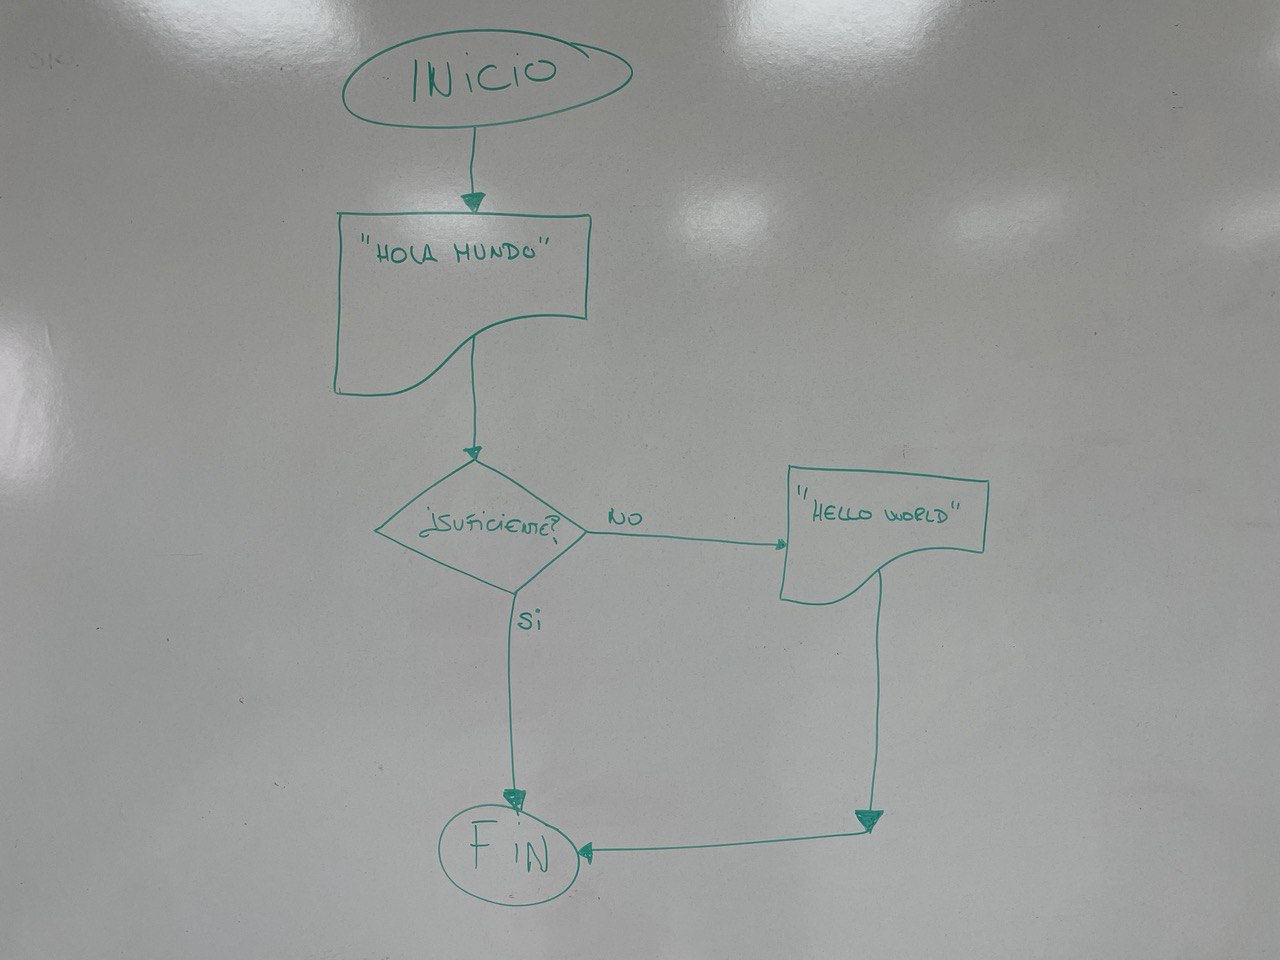 INICIO
"HOLA MUNDO"
¿SUFICIENTE?
NO
"HELLO WORLD"
Si
FiN